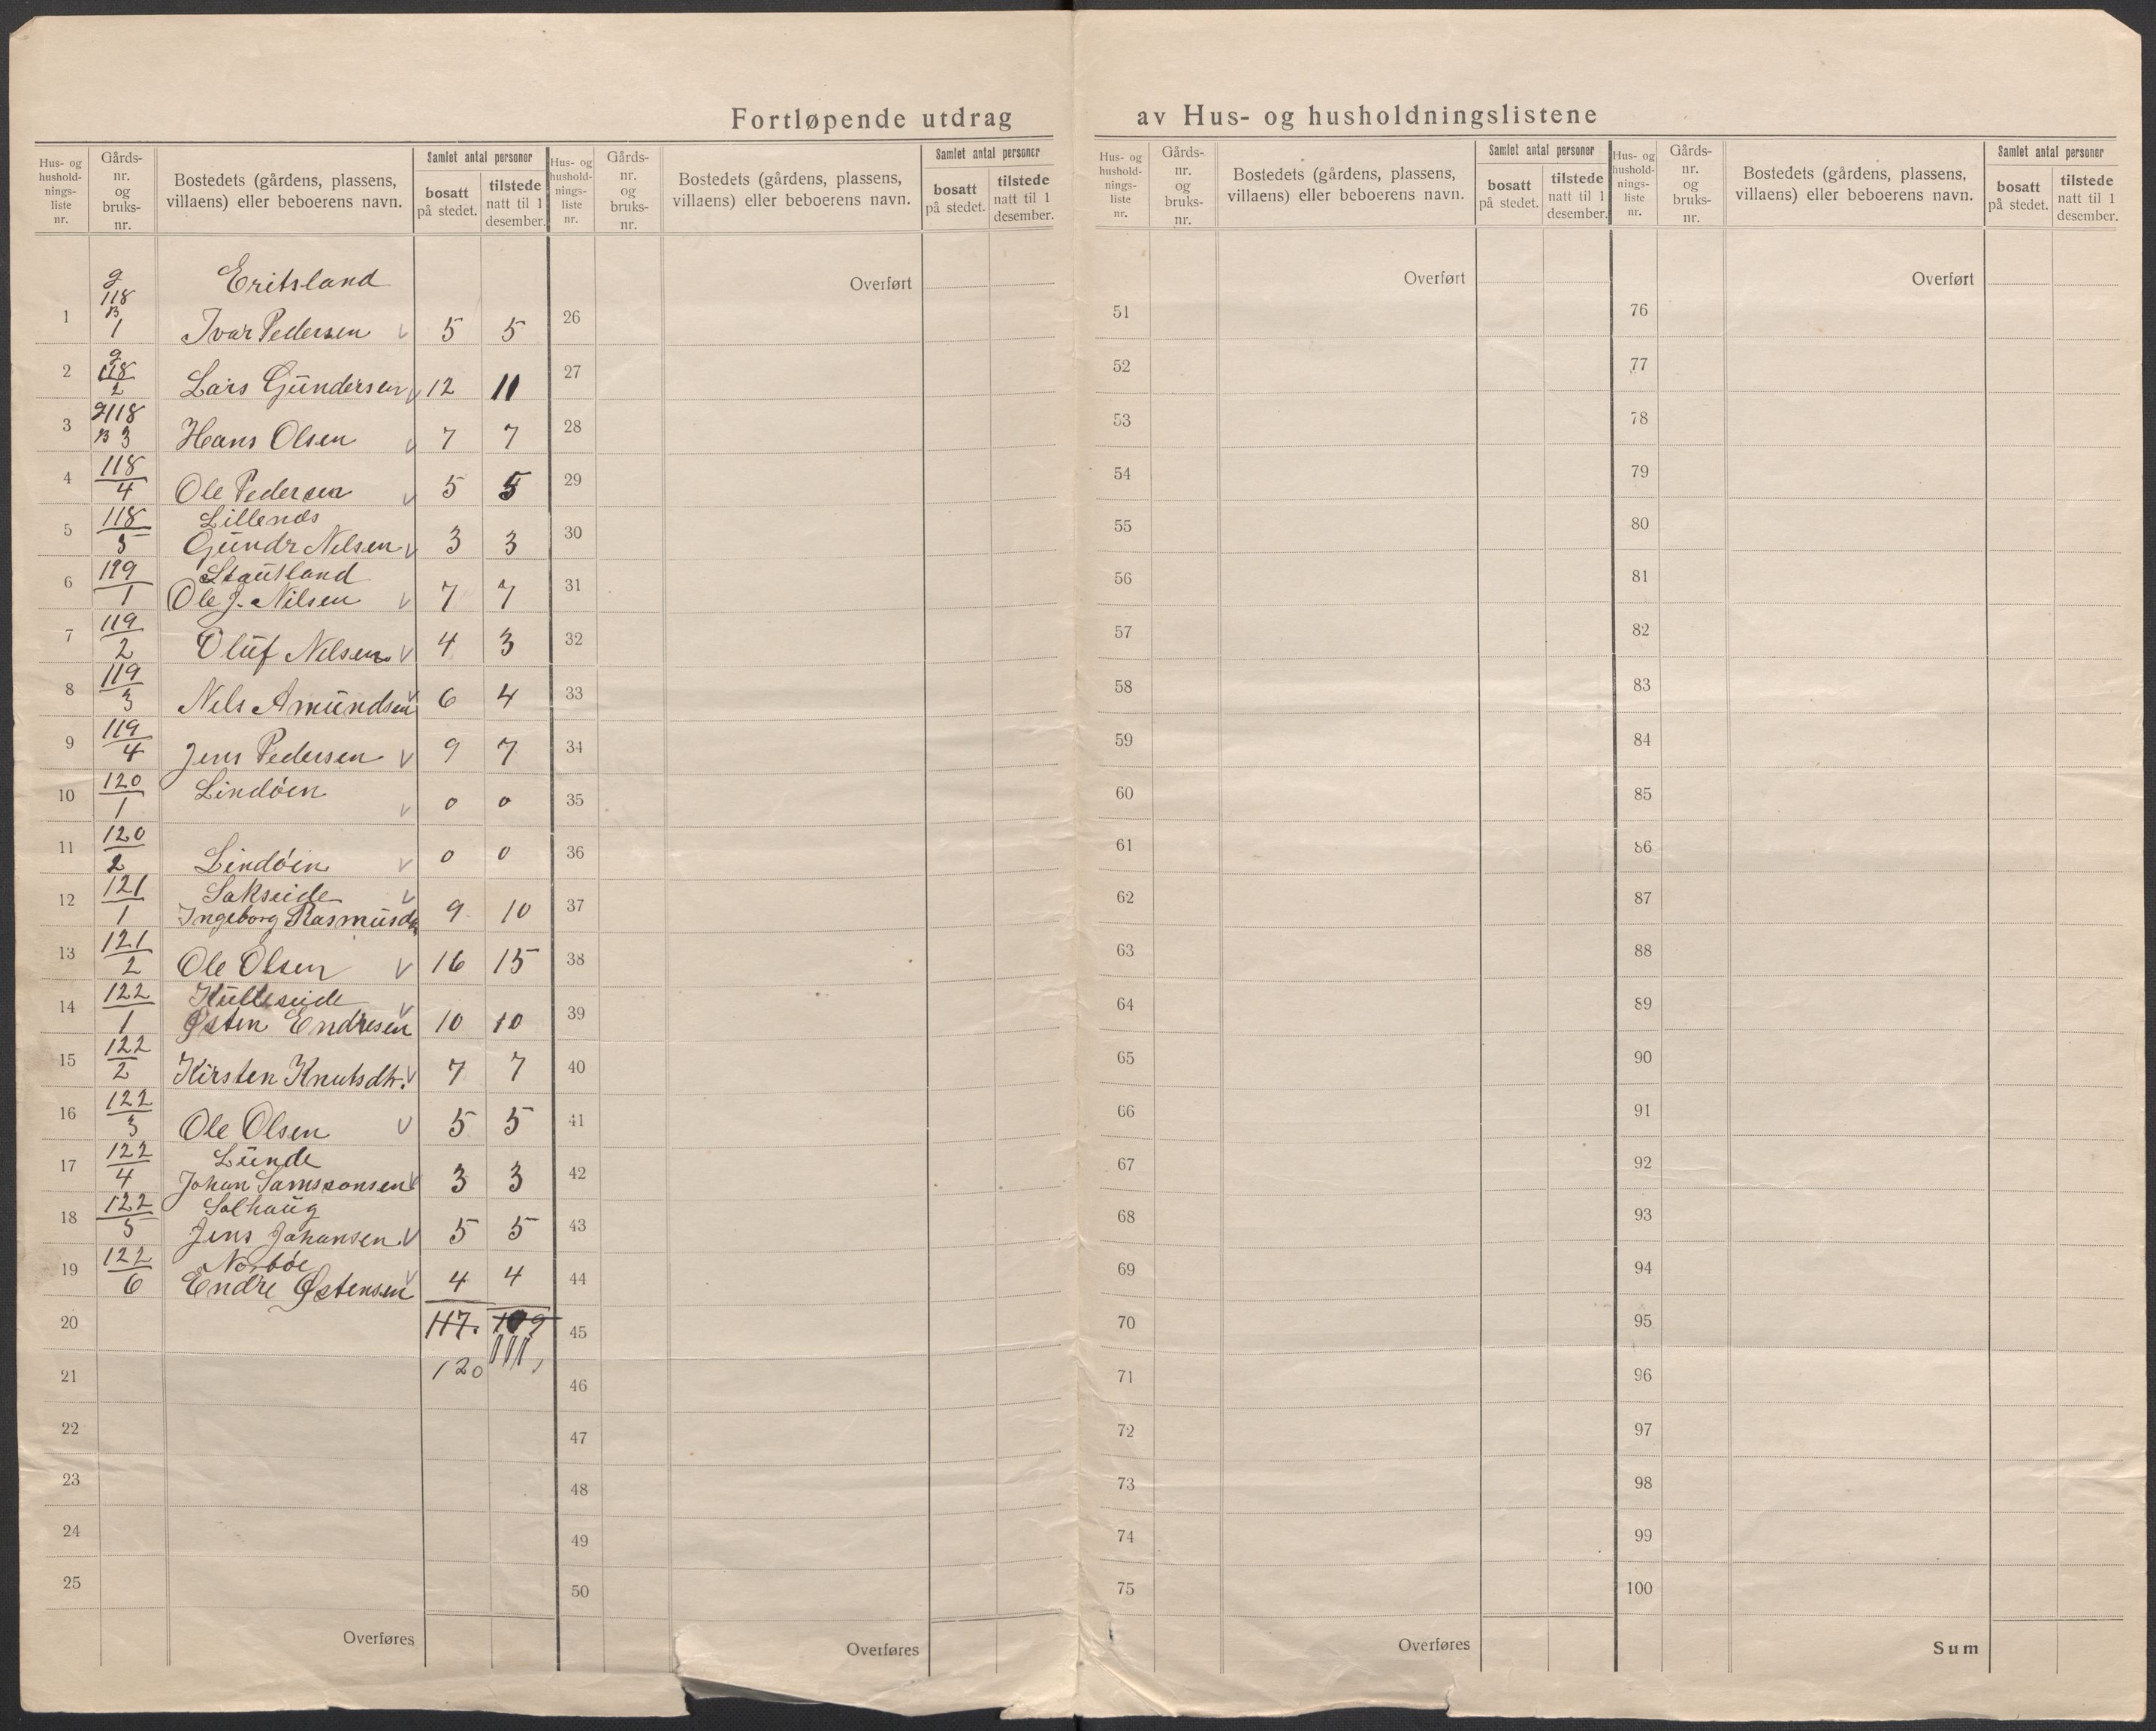 Fortløpende utdrag av Hus- og husholdningslistene
Hus- og
hushold-
nings-
liste
nr.
Gårds-
nr.
og
bruks-
nr.
Bostedets (gårdens, plassens,
villaens) eller beboerens navn.
Samlet antal personer
bosatt
på stedet.
tilstede
natt til 1
desember.
Eritsland
1 g 118 B 1 Ivar Pedersen v 5 5
2 g 118 2 Lars Gundersen v 12 11
3 g 118 B 3 Hans Olsen v 7 7
4 118/4 Ole Pedersen v 5 5
5 118/5 Lillenæs
Gundr Nelsen v 3 3
6 119/1 Stautland
Ole J. Nilsen v 7 7
7 119/2 Oluf Nelsen v 4 3
8 119/3 Nels Amundsen v 6 4
9 119/4 Jens Pedersen v 9 7
10 120/1 Lindöen v 0 0
11 120/2 Lindöen v 0 0
12 121/1 Sakseide v
Ingeborg Rasmusdtr 9 10
13 121/2 Ole Olsen v 16 15
14 122/1 Kulleseide v
Østen Endresen 10 10
15 122/2 Kirsten Knutsdtr. v 7 7
16 122/3 Ole Olsen v 5 5
17 122/4 Lunde
Johan Samsonsen v 3 3
18 122/5 Solhaug
Jens Johansen v 5 5
19 122/6 Norböe
Endre Østensen v 4 4
20 117. 109
21 120 111
22
23
24
25
Overføres
Hus- og
hushold-
nings-
liste
nr.
Gårds-
nr.
og
bruks-
nr.
Bostedets (gårdens, plassens,
villaens) eller beboerens navn.
Samlet antal personer
bosatt
på stedet.
tilstede
natt til 1
desember.
Overført
26
27
28
29
30
31
32
33
34
35
36
37
38
39
40
41
42
43
44
45
46
47
48
49
50
Overføres
Hus- og
hushold-
nings-
liste
nr.
Gårds-
nr.
og
bruks-
nr.
Bostedets (gårdens, plassens,
villaens) eller beboerens navn.
Samlet antal personer
bosatt
på stedet.
tilstede
natt til 1
desember.
Overført
51
52
53
54
55
56
57
58
59
60
61
62
63
64
65
66
67
68
69
70
71
72
73
74
75
Overføres
Hus- og
hushold-
nings-
liste
nr.
Gårds-
nr.
og
bruks-
nr.
Bostedets (gårdens, plassens,
villaens) eller beboerens navn.
Samlet antal personer
bosatt
på stedet.
tilstede
natt til 1
desember.
Overført
76
77
78
79
80
81
82
83
84
85
86
87
88
89
90
91
92
93
94
95
96
97
98
99
100
Sum